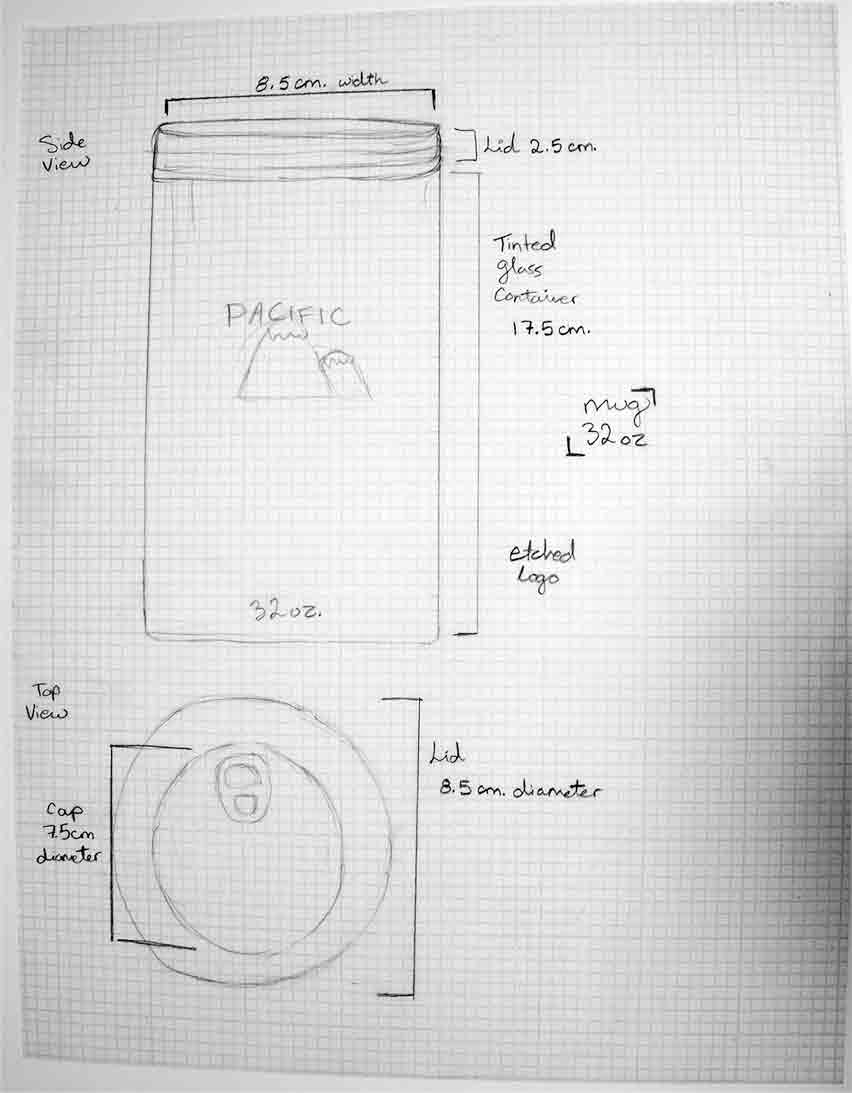 8.5 cm. width
Side
View
Lid 2.5 cm.
Tinted
glass
Container
17.5 cm.
PACIFIC
mug
32 oz
etched
Logo
32 oz.
Top
View
Lid
8.5 cm. diameter
Cap
7.5cm
diameter